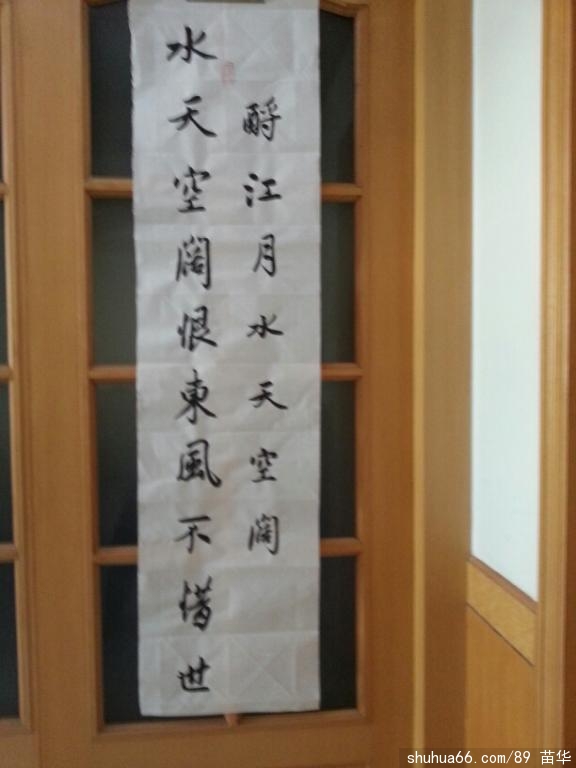 酹江月水天空阔
水天空阔恨東風不惜世
shuhua66.com/89 苗华